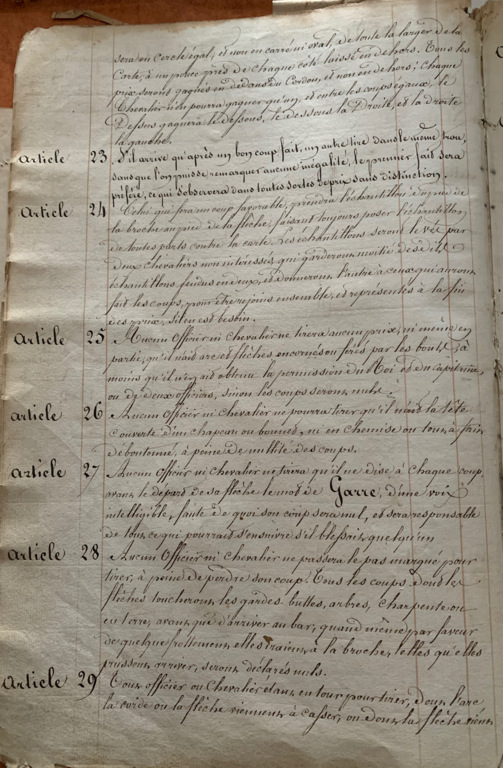 sera en cercle égal, et non en carré ni oval, de toute la larger de la
Carte, à un pouce près de chaque côté laissé en dehors. Tous les
prix seront gagnés en dedans du Cordon, et non en dehors; chaque
Chevalier n'en pourra gagner qu'un, et entre les coups égaux, le
Dessus gagnera le dessous, le dessous la Droite, et la droite
la gauche.
Article 23 S'il arrive qu'après un bon coup fait, un autre tire dans le même trou,
sans que l'on puisse remarquer aucune inégalité, le premier fait sera
préféré, ce qui s'observera dans toutes sortes de prix sans distinction.
Article 24 Celui qui fera un coup favorable, prendra l'échantillon auprès de
la broche auprès de la flèche, faisant toujours poser l'échantillon
de toutes parts contre la carte. Les échantillons seront levés par
deux Chevaliers non intéressés, qui garderont moitié desdits
échantillons fendus en deux, et donneront l'autre à ceux qui auront
fait les coups, pour être rejoins ensemble, et représentés à la fin
des prix, s'il en est besoin.
Article 25 Aucun Officier ni Chevalier ne tirera aucun prix, ni même en
partie, qu'il n'ait arc et flèches encornés ou ferés par les bouts, à
moins qu'il n'en ait obtenu la permission du Roi et du Capitaine,
ou de deux officiers, sinon les coups seront nuls.
Article 26 Aucun Officier ni Chevalier ne pourra tirer qu'il n'ait la tête
couverte d'un chapeau ou bonnet, ni en chemise ou tout à fait
déboutonné, à peine de nullité des coups.
Article 27 Aucun Officier ni Chevalier ne tirera qu'il ne dise à chaque coup
avant le départ de sa flèche le mot de Garre, d'une voix
intelligible, faute de quoi son coup sera nul, et sera responsable
de tout ce qui pourrait s'ensuivre s'il blessait quelqu'un
Article 28 Aucun Officier ni Chevalier ne passera le pas marqué pour
tirer, à peine de perdre son coup. Tous les coups dont les
flèches toucheront les gardes. buttes, arbres, charpente ou
en terre, avant que d'arriver au bar, quand même par faveur
de quelque frottement elles iraient à la broche, telles qu'elles
pussent arriver, seront déclarés nuls.
Article 29 Tout officier ou Chevalier étant en tour pour tirer, dont l'arc
la corde ou la flèche viennent à casser, ou dont la flèche vient